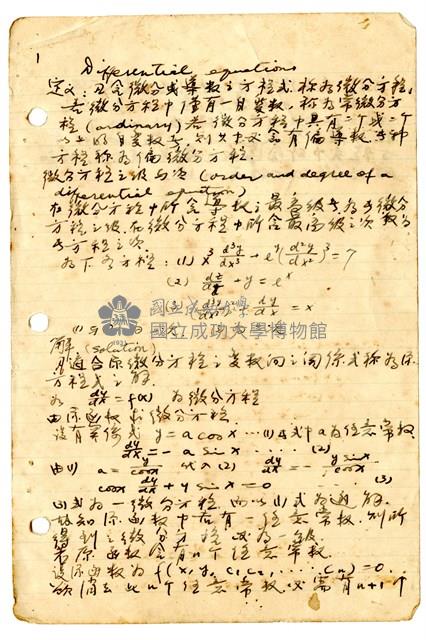 1
Differential equations
定义：凡含微分或导数之方程式称为微分方程,
若微分方程中僅有一自变數,称为常微分方
程(ordinary)若微分方程中具有二个或二个
以上的自变数者,则其中必含有偏导数,此种
方程称为偏微分方程.
微分方程之级与次 (order and degree of a
differential equation)
在微分方程中所含导数之最高级者为微分
方程之级在微分方程中所含最高级之次数
方程之次
为下方方程：(1) x³ d³y/dx³ + e^y (d²y/dx²)³ = 7
(2) + y = e^x
= x
國立成功大學
國立成功大學博物館
1931
解 (solution)
凡適合原微分方程之变数间之关係式称為原
方程式之解
为 dy/dx = f(x) 为微分方程
由原函数求微分方程
设有关係式 y = a cos x ···(1) 式中a为任意常数
dy/dx = - a sin x ···· (2)
由(1) a = y/cos x 代入(2) dy/dx = - y sin x/cos x
cos x dy/dx + y sin x = 0 (3)
(3)式为一微分方程而以(1)式为通解.
故知原函数中若有一任意常数,则所
得到之微分方程必为一级.
若原函数含有n个任意常数
设原函数为 f(x, y, c₁, c₂, ···· cn) = 0
欲消去此n个任意常数必需有n+1个